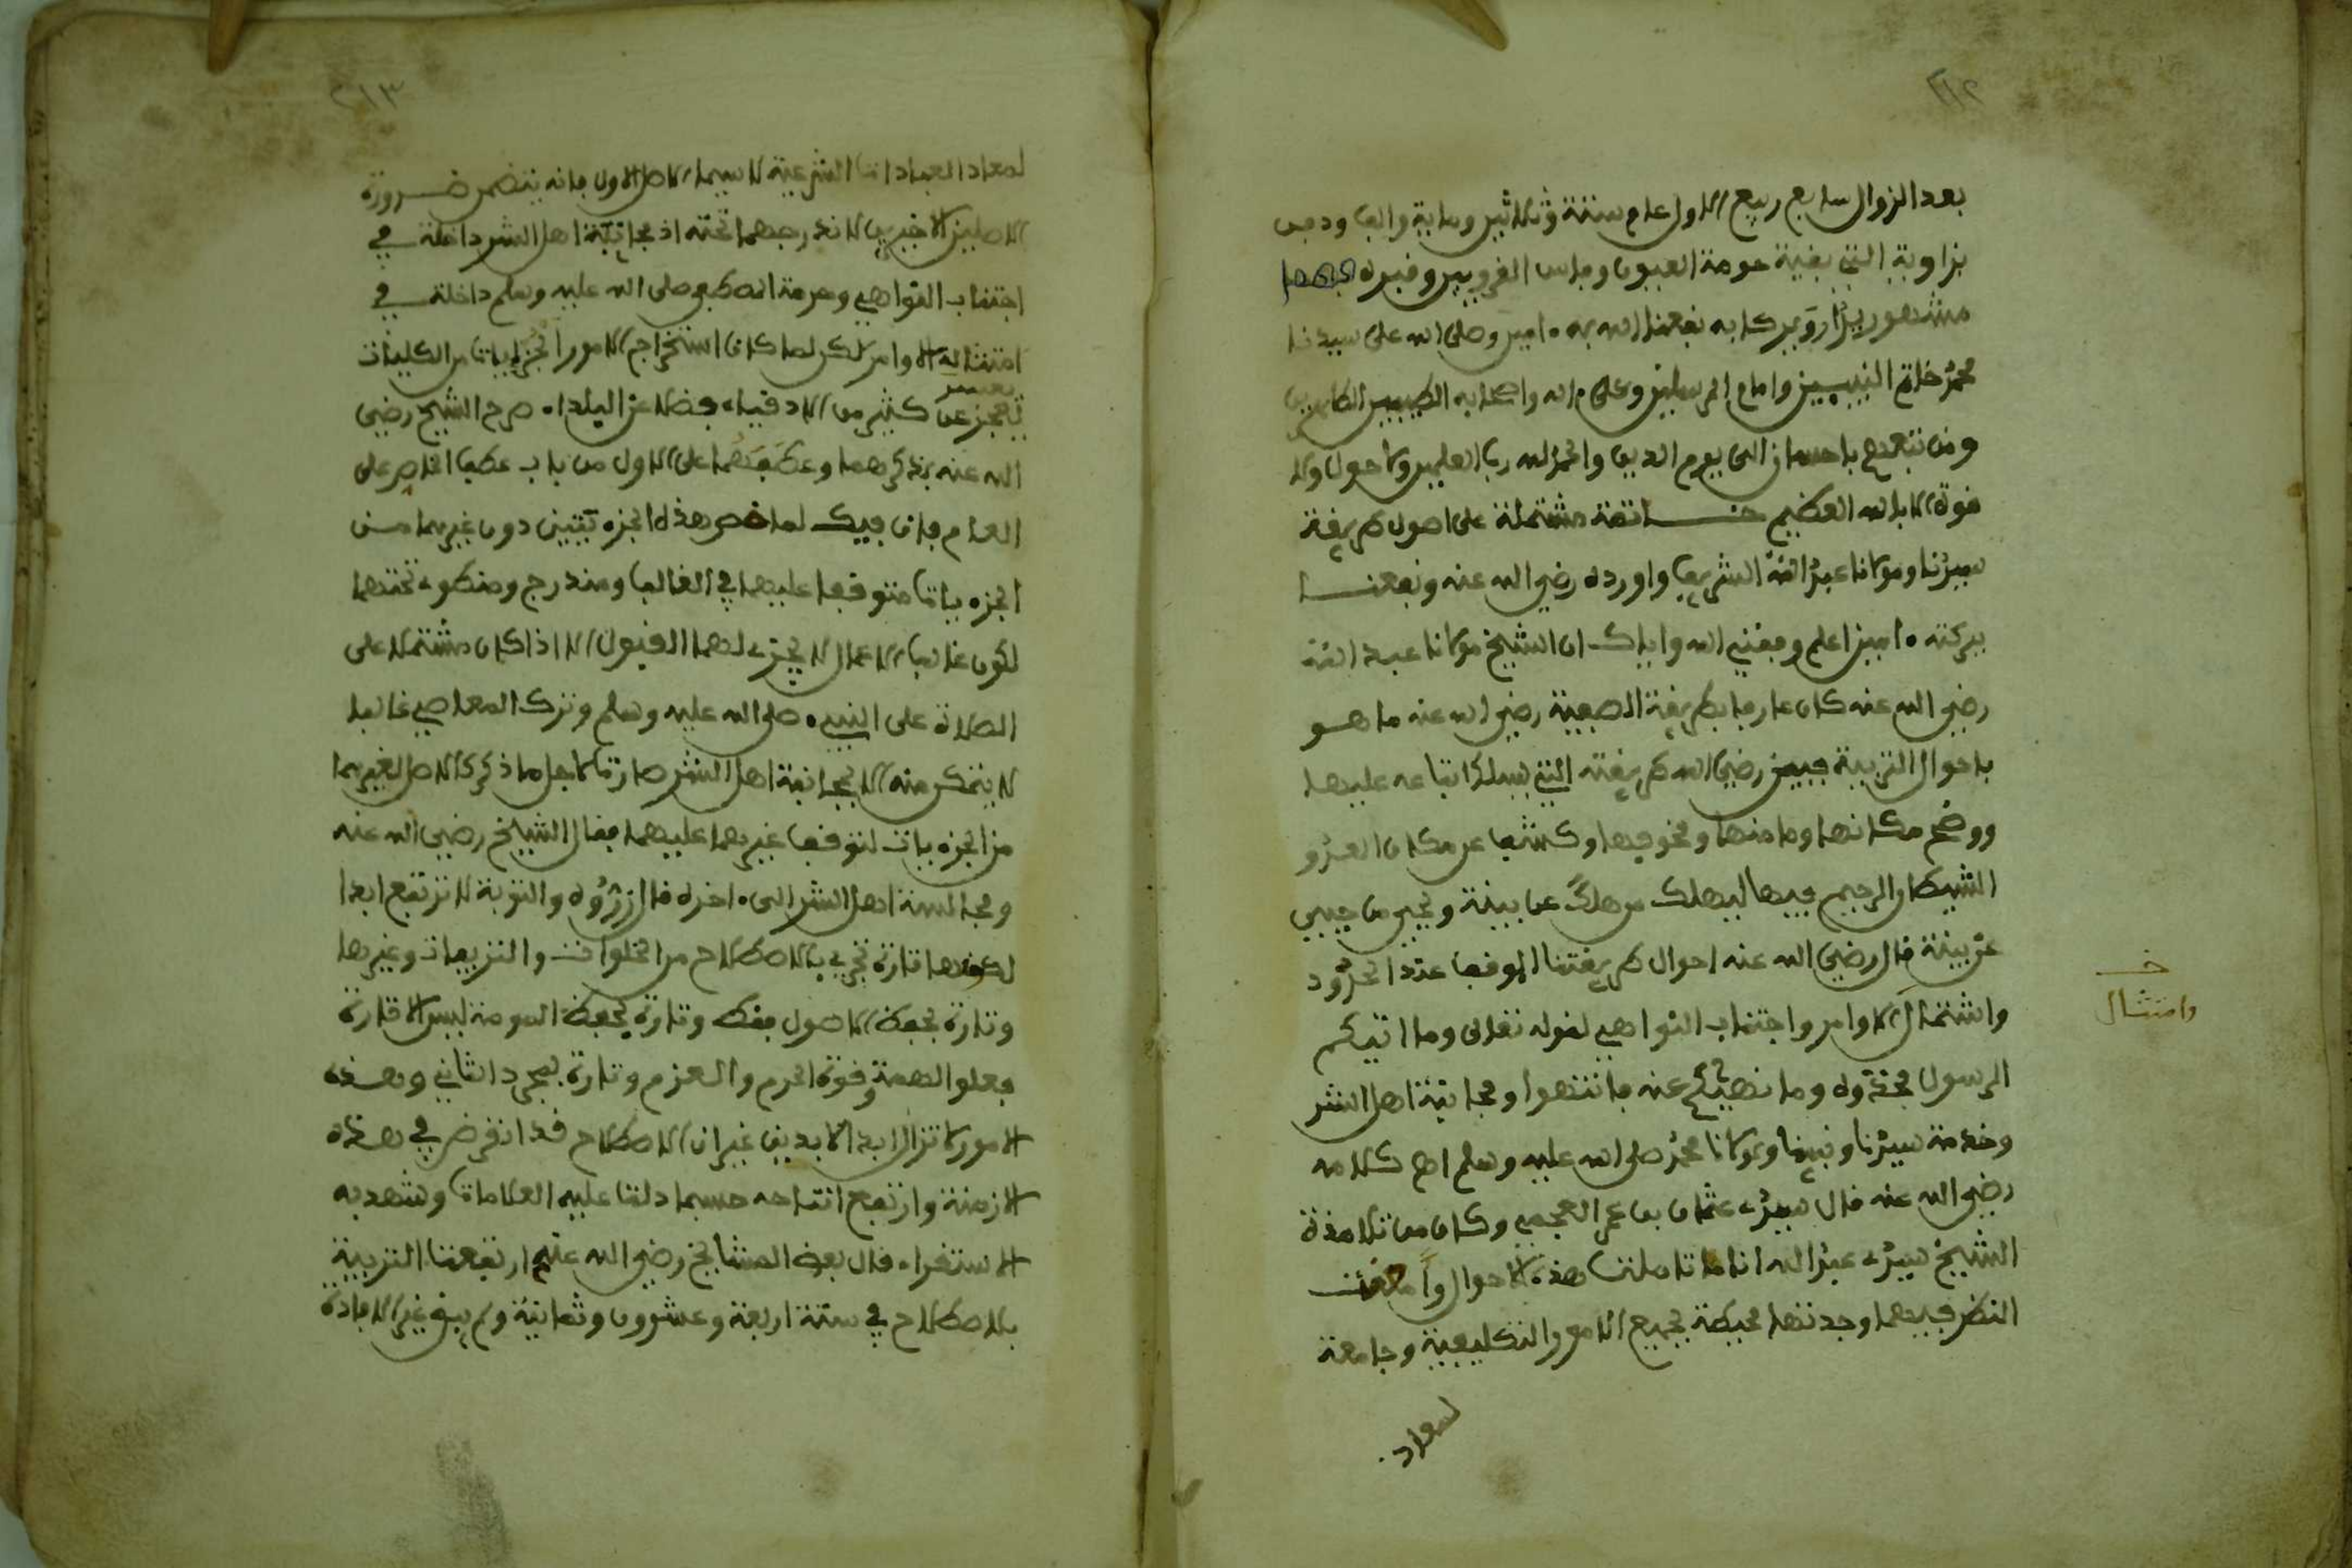 ٢١٢
بعد الزوال سابع ربيع الاول عام ستة وثلاثين وماية والف ودفن
بزاويته التي بقية حومة العيون وفاس القرويين وقبره بها
مشهور يزار ويتبرك به نفعنا الله به ءامين وصلى الله على سيدنا
محمد خاتم النبيين وامام المرسلين وعلى ءاله واصحابه الطيبين الطاهرين
ومن تبعهم باحسان الى يوم الدين والحمد لله رب العلمين ولا حول ولا
قوة الا بالله العظيم خاتمة مشتملة على اصول طريقة
سيدنا ومولانا عبد الله الشريف واوراده رضي الله عنه ونفعنا
ببركته ءامين اعلم وفقني الله واياك ان الشيخ مولانا عبد الله
رضي الله عنه كان عارفا بطريقة الصوفية رضي الله عنه ما هو
باحوال التربية فبين رضي الله طريقته التي يسلك اتباعه عليها
ووضح مكانها ومامنها ومخوفها وكشف عن مكان العدو
الشيطان الرجيم فيها ليهلك من هلك عن بينة ويحيى من حيي
عن بينة قال رضي الله عنه احوال طريقتنا الوقف عند الحدود
واشتمال الاوامر واجتناب النواهي لقوله تعالى وما اتيكم
الرسول فخذوه وما نهيكم عنه فانتهوا ومجانبة اهل الشر
وخدمة سيدنا ونبينا ومولانا محمد صلى الله عليه وسلم اهـ كلامه
رضي الله عنه قال سيدي عثمان بن عمر العجمي وكان من تلامذة
الشيخ سيدي عبد الله انا ما تاملت هذه الاحوال وامعنت
النظر فيها وجدتها محيطة بجميع الامور التكليفية وجامعة
لمعاد
خـ
وامتثال
٢١٣
لمعاد العبادات الشرعية لا سيما الاصل الاول فانه يتضمن ضرورة
الاصلين الاخيرين لاندراجهما تحته اذ مجانبة اهل الشر داخلة في
اجتناب النواهي وحرمة المصطفى صلى الله عليه وسلم داخلة في
امتثاله الاوامر لكن لما كان استخراج الامور الجزئيات من الكليات
يعسر
يعجز عن كثير من الاذقياء فضلا عن البلداء صرح الشيخ رضي
الله عنه بذكرهما وعطفهما على الاول من باب عطف الخاص على
العام فان قيل لما خص هذه الجزءيتين دون غيرهما من
الجزءيات متوقف عليهما في الغالب ومندرج ومنطو تحتهما
لكون غالب الاعمال لا يجزى لها القبول الا اذا كان مشتملا على
الصلاة على النبيء صلى الله عليه وسلم وترك المعاصي غالبا
لا يتمكن منه الا بمجانبة اهل الشر صارتا لاجل ما ذكر كالاصل لغيرهما
من الجزءيات لتوقف غيرهما عليهما فقال الشيخ رضي الله عنه
ومجالسة اهل الشر الى ءاخره قال زروه والتوبة لا ترتفع ابدا
لكنها تارة تجري بالاصطلاح من الخلوات والتزيفات وغيرها
وتارة بحفظ الاصول فقط وتارة بحفظ الحومة ليس الا وتارة
بعلو الهمة وقوة الحرم والعزم وتارة بمجرد الثاني وهذه
الامور لا تزال ابد الابدين غير ان الاصطلاح قد انقرض في هذه
الازمنة وارتفع انتاجه حسبما دلت عليه العلامات وشهد به
الاستقراء قال بعض المشايخ رضي الله عنهم ارتفعت التربية
بالاصطلاح في ستة اربعة وعشرون وثمانية ولم يبق غير الافادة